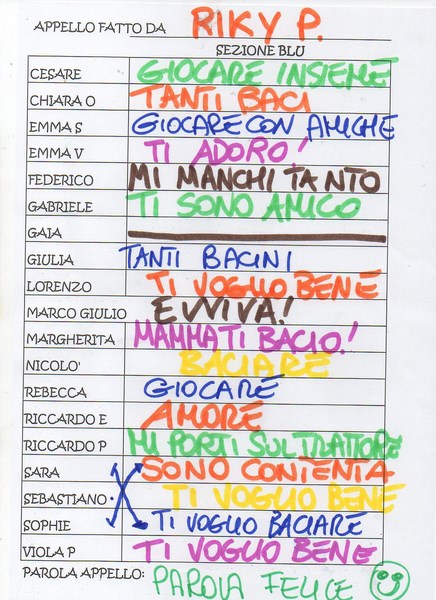 APPELLO FATTO DA RIKY P.
SEZIONE BLU
CESARE GIOCARE INSIEME
CHIARA O TANTI BACI
EMMA S GIOCARE CON AMICHE
EMMA V TI ADORO!
FEDERICO MI MANCHI TANTO
GABRIELE TI SONO AMICO
GAIA
GIULIA TANTI BACINI
LORENZO TI VOGLIO BENE
MARCO GIULIO EVVIVA!
MARGHERITA MAMMA TI BACIO!
NICOLO' BACIARE
REBECCA GIOCARE
RICCARDO E AMORE
RICCARDO P MI PORTI SUL TRATTORE
SARA SONO CONTENTA
SEBASTIANO TI VOGLIO BENE
SOPHIE TI VOGLIO BACIARE
VIOLA P TI VOGLIO BENE
PAROLA APPELLO: PAROLA FELICE